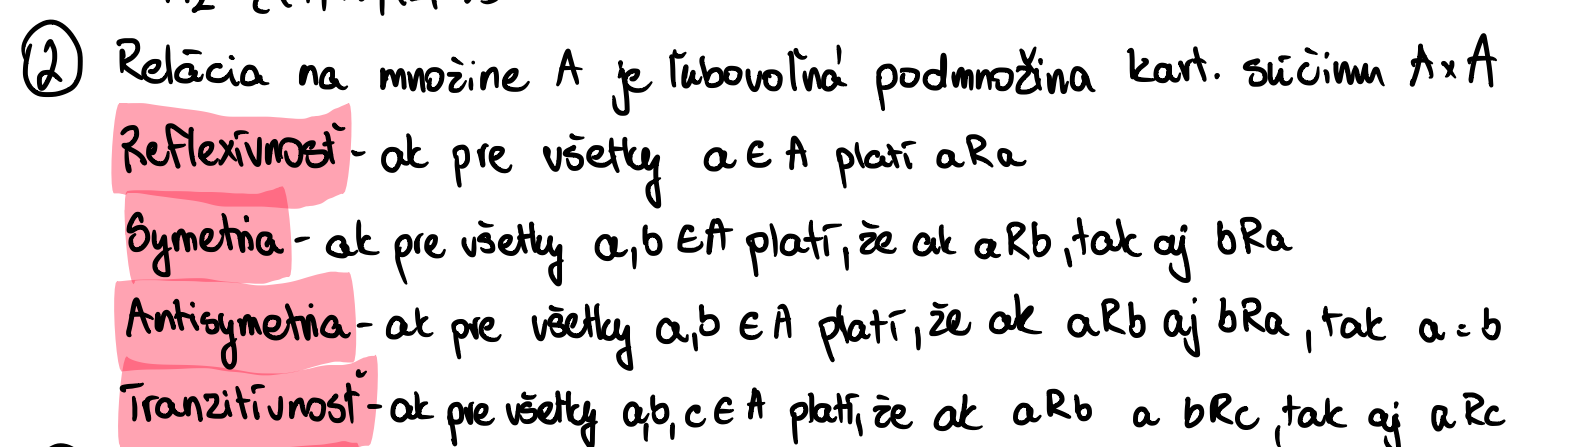 ② Relácia na množine A je ľubovoľná podmnožina kart. súčinu A×A
Reflexívnosť - ak pre všetky a ∈ A platí aRa
Symetria - ak pre všetky a,b ∈ A platí, že ak aRb, tak aj bRa
Antisymetria - ak pre všetky a,b ∈ A platí, že ak aRb aj bRa, tak a=b
Tranzitívnosť - ak pre všetky a,b,c ∈ A platí, že ak aRb a bRc, tak aj aRc